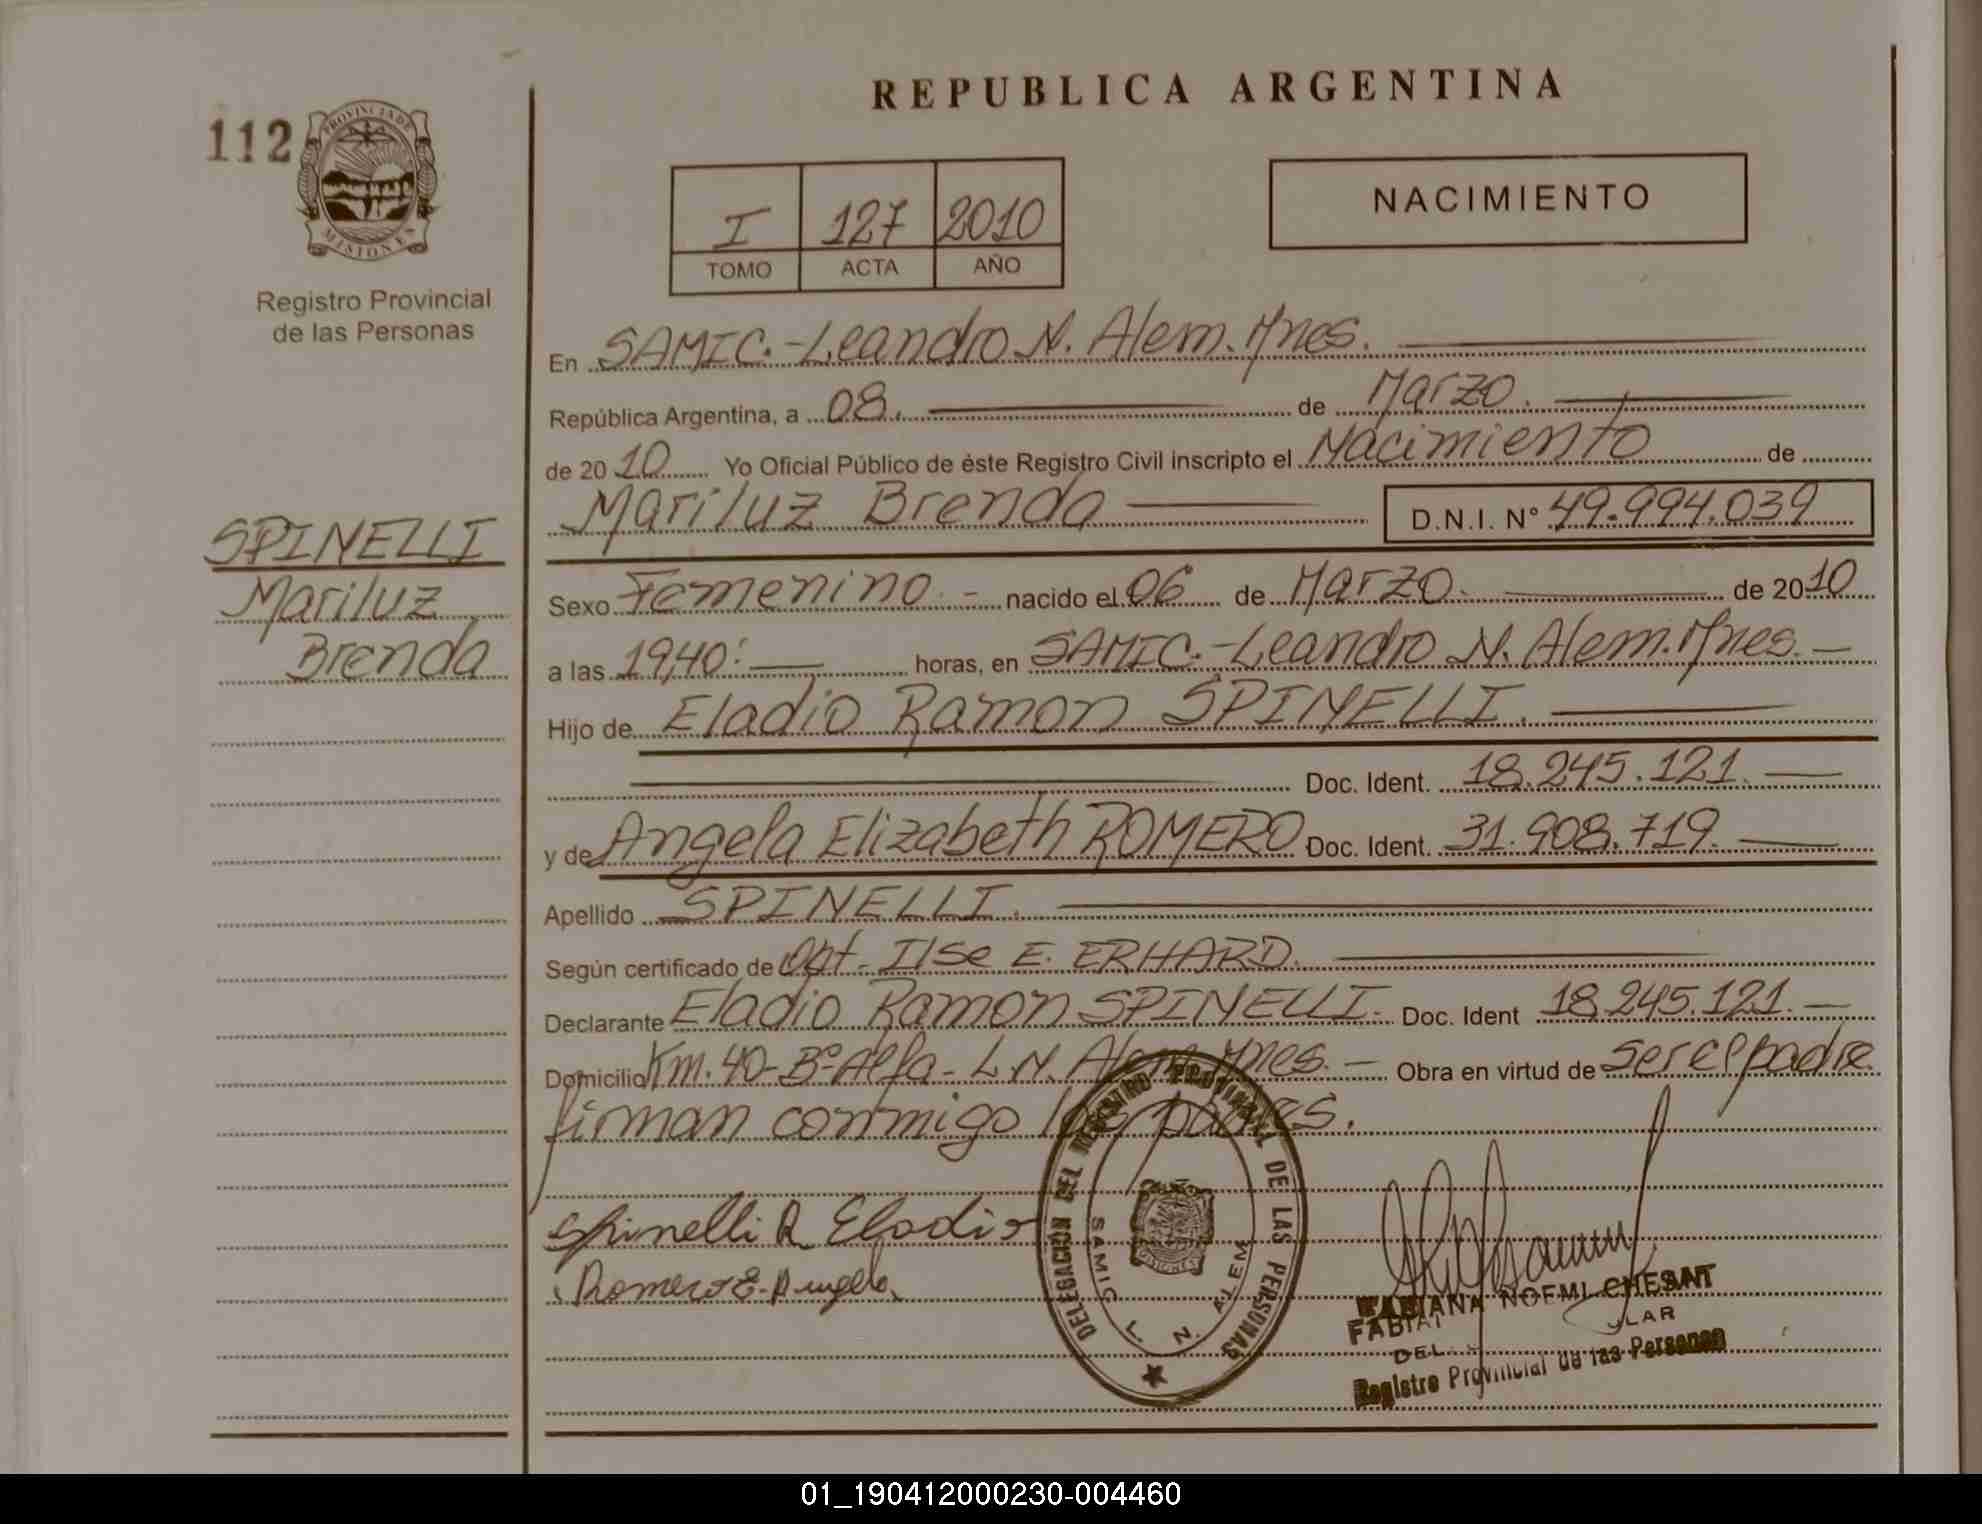 REPUBLICA ARGENTINA
112
PROVINCIA DE
MISIONES
Registro Provincial
de las Personas
NACIMIENTO
I 127 2010
TOMO ACTA AÑO
En SAMIC.-Leandro N. Alem. Mnes.
República Argentina, a 08. de Marzo.
de 2010 Yo Oficial Público de éste Registro Civil inscripto el Nacimiento de
Mariluz Brenda D.N.I. N° 49.994.039
SPINELLI
Mariluz
Brenda
Sexo Femenino.- nacido el 06 de Marzo. de 2010
a las 19,40: horas, en SAMIC.-Leandro N. Alem. Mnes.
Hijo de Eladio Ramon SPINELLI.
Doc. Ident. 18.245.121.
y de Angela Elizabeth ROMERO Doc. Ident. 31.908.719.
Apellido SPINELLI.
Según certificado de Obt. Ilse E. ERHARD.
Declarante Eladio Ramon SPINELLI. Doc. Ident 18.245.121.
Domicilio Km. 40-B°-Alfa- L.N. Alem. Mnes. Obra en virtud de ser el padre
firman conmigo los padres.
Spinelli R Eladio
Romero E. Angela
DELEGACIÓN DEL REGISTRO PROVINCIAL DE LAS PERSONAS
SAMIC L. N. ALEM
MISIONES
FABIANA NOEMI CHESANT
Registro Provincial de las Personas
01_190412000230-004460